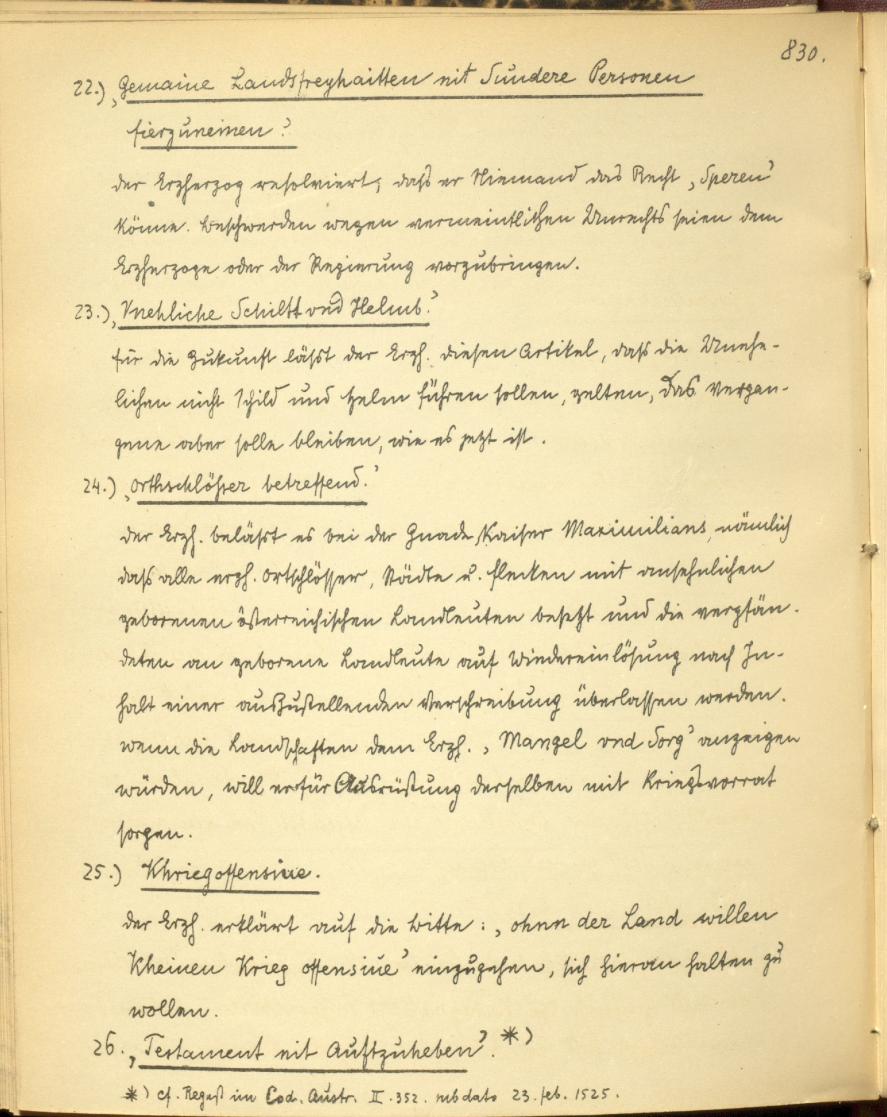 830.
22.) ‚Gemaine Landsfreyhaitten nit Sundere Personen
fierzuneinen?
der Erzherzog resolviert, daß er Niemand das Recht ‚Speren’
könne. Beschwerden wegen vermeintlichen Unrechts seien dem
Erzherzoge oder der Regierung vorzubringen.
23.) ‚Vnehliche Schiltt vnd Helmb.’
für die Zukunft läßt der Erzh. diesen Artikel, daß die Unehe-
lichen nicht Schild und Helm führen sollen, gelten, das vergan-
gene aber solle bleiben, wie es jetzt ist.
24.) ‚Orthschlösser betreffend.’
der Erzh. beläßt es bei der Gnade Kaiser Maximilians, nämlich
daß alle erzh. Ortschlösser, Städte u. Flecken mit ansehnlichen
geborenen österreichischen Landleuten besetzt und die verpfän-
deten an geborene Landleute auf Wiedereinlösung nach In-
halt einer auszustellenden Verschreibung überlassen werden.
wenn die Landschaften dem Erzh. ‚Mangel vnd Sorg’ anzeigen
würden, will er für Ausrüstung derselben mit Kriegsvorrat
sorgen.
25.) Khriegoffensiue.
der Erzh. erklärt auf die Bitte: ‚ohnn der Land willen
Kheinen Krieg offensiue’ einzugehen, sich hieran halten zu
wollen.
26. ‚Testament nit Aufzuheben’. *)
*) cf. Regest im Cod. Austr. II. 352. sub dato 23. feb. 1525.